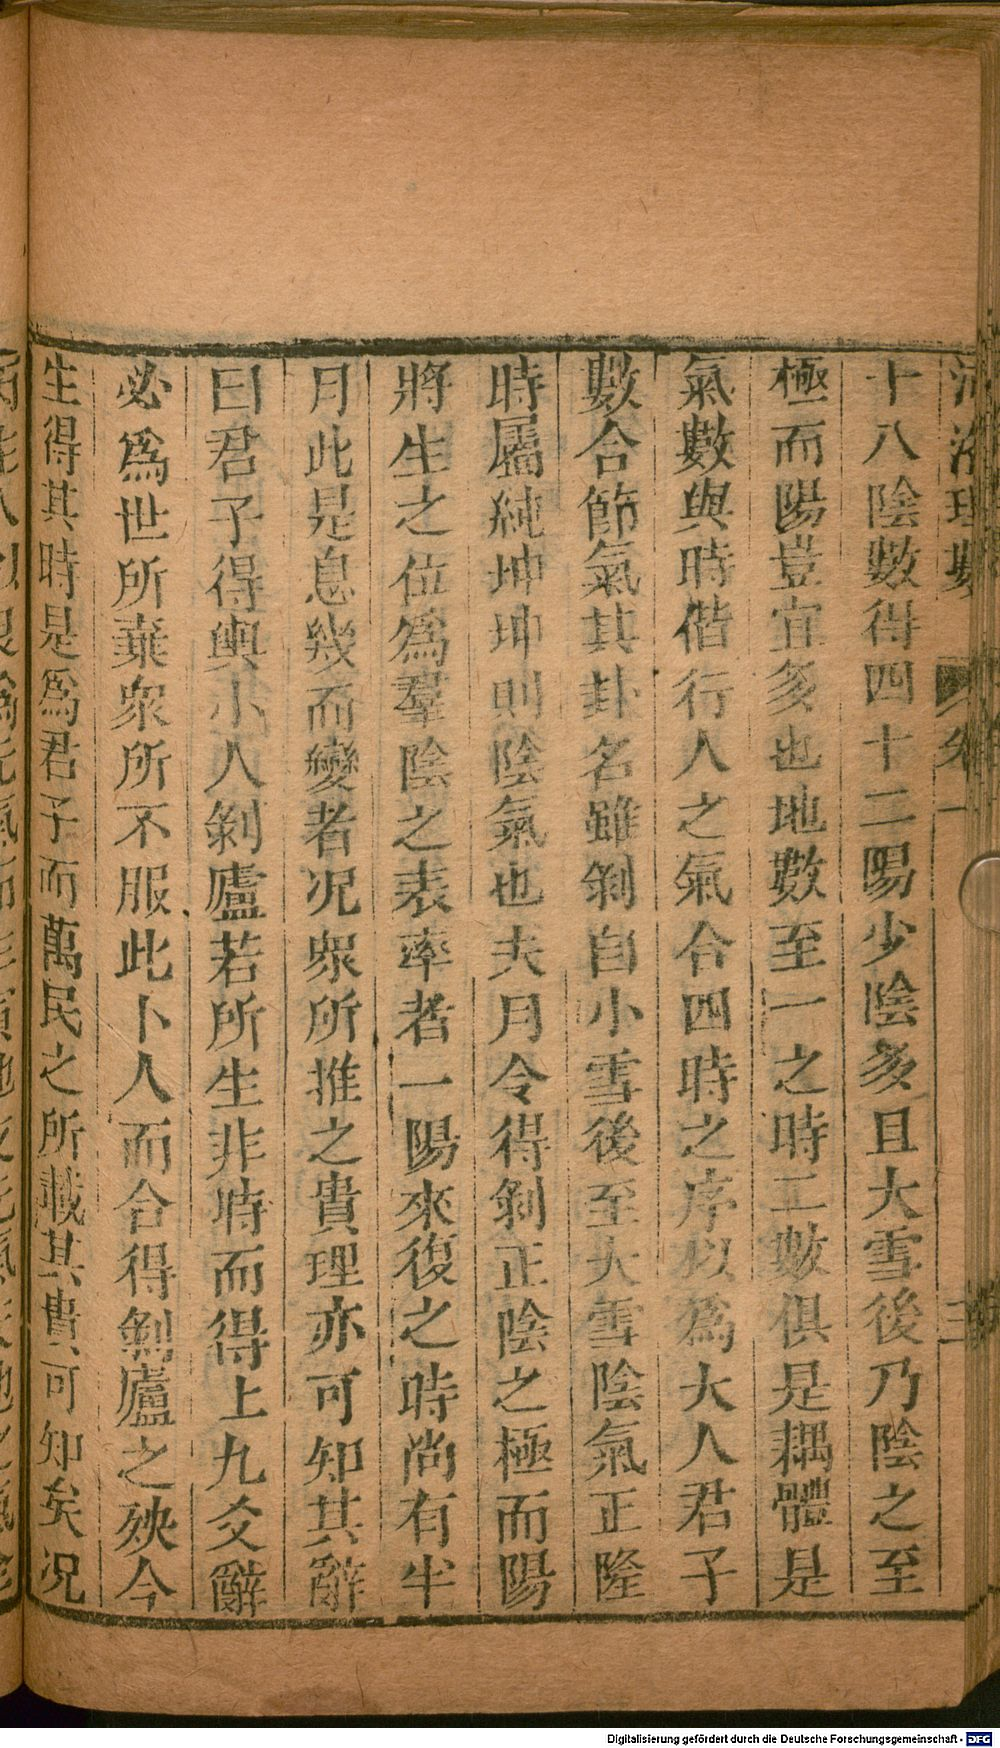 河洛理數 卷一 三
十八陰數得四十二陽少陰多且大雪後乃陰之至
極而陽豈宜多也地數至一之時二數俱是耦體是
氣數與時偕行人之氣合四時之序以為大人君子
數合節氣其卦名雖剝自小雪後至大雪陰氣正隆
時屬純坤坤則陰氣也夫月令得剝正陰之極而陽
將生之位為羣陰之表率者一陽來復之時尚有半
月此是息幾而變者况衆所推之貴理亦可知其辭
曰君子得輿小人剝廬若所生非時而得上九爻辭
必爲世所棄衆所不服此卜人而合得剝廬之殃今
生得其時是爲君子而萬民之所載其貴可知矣况
Digitalisierung gefördert durch die Deutsche Forschungsgemeinschaft - DFG